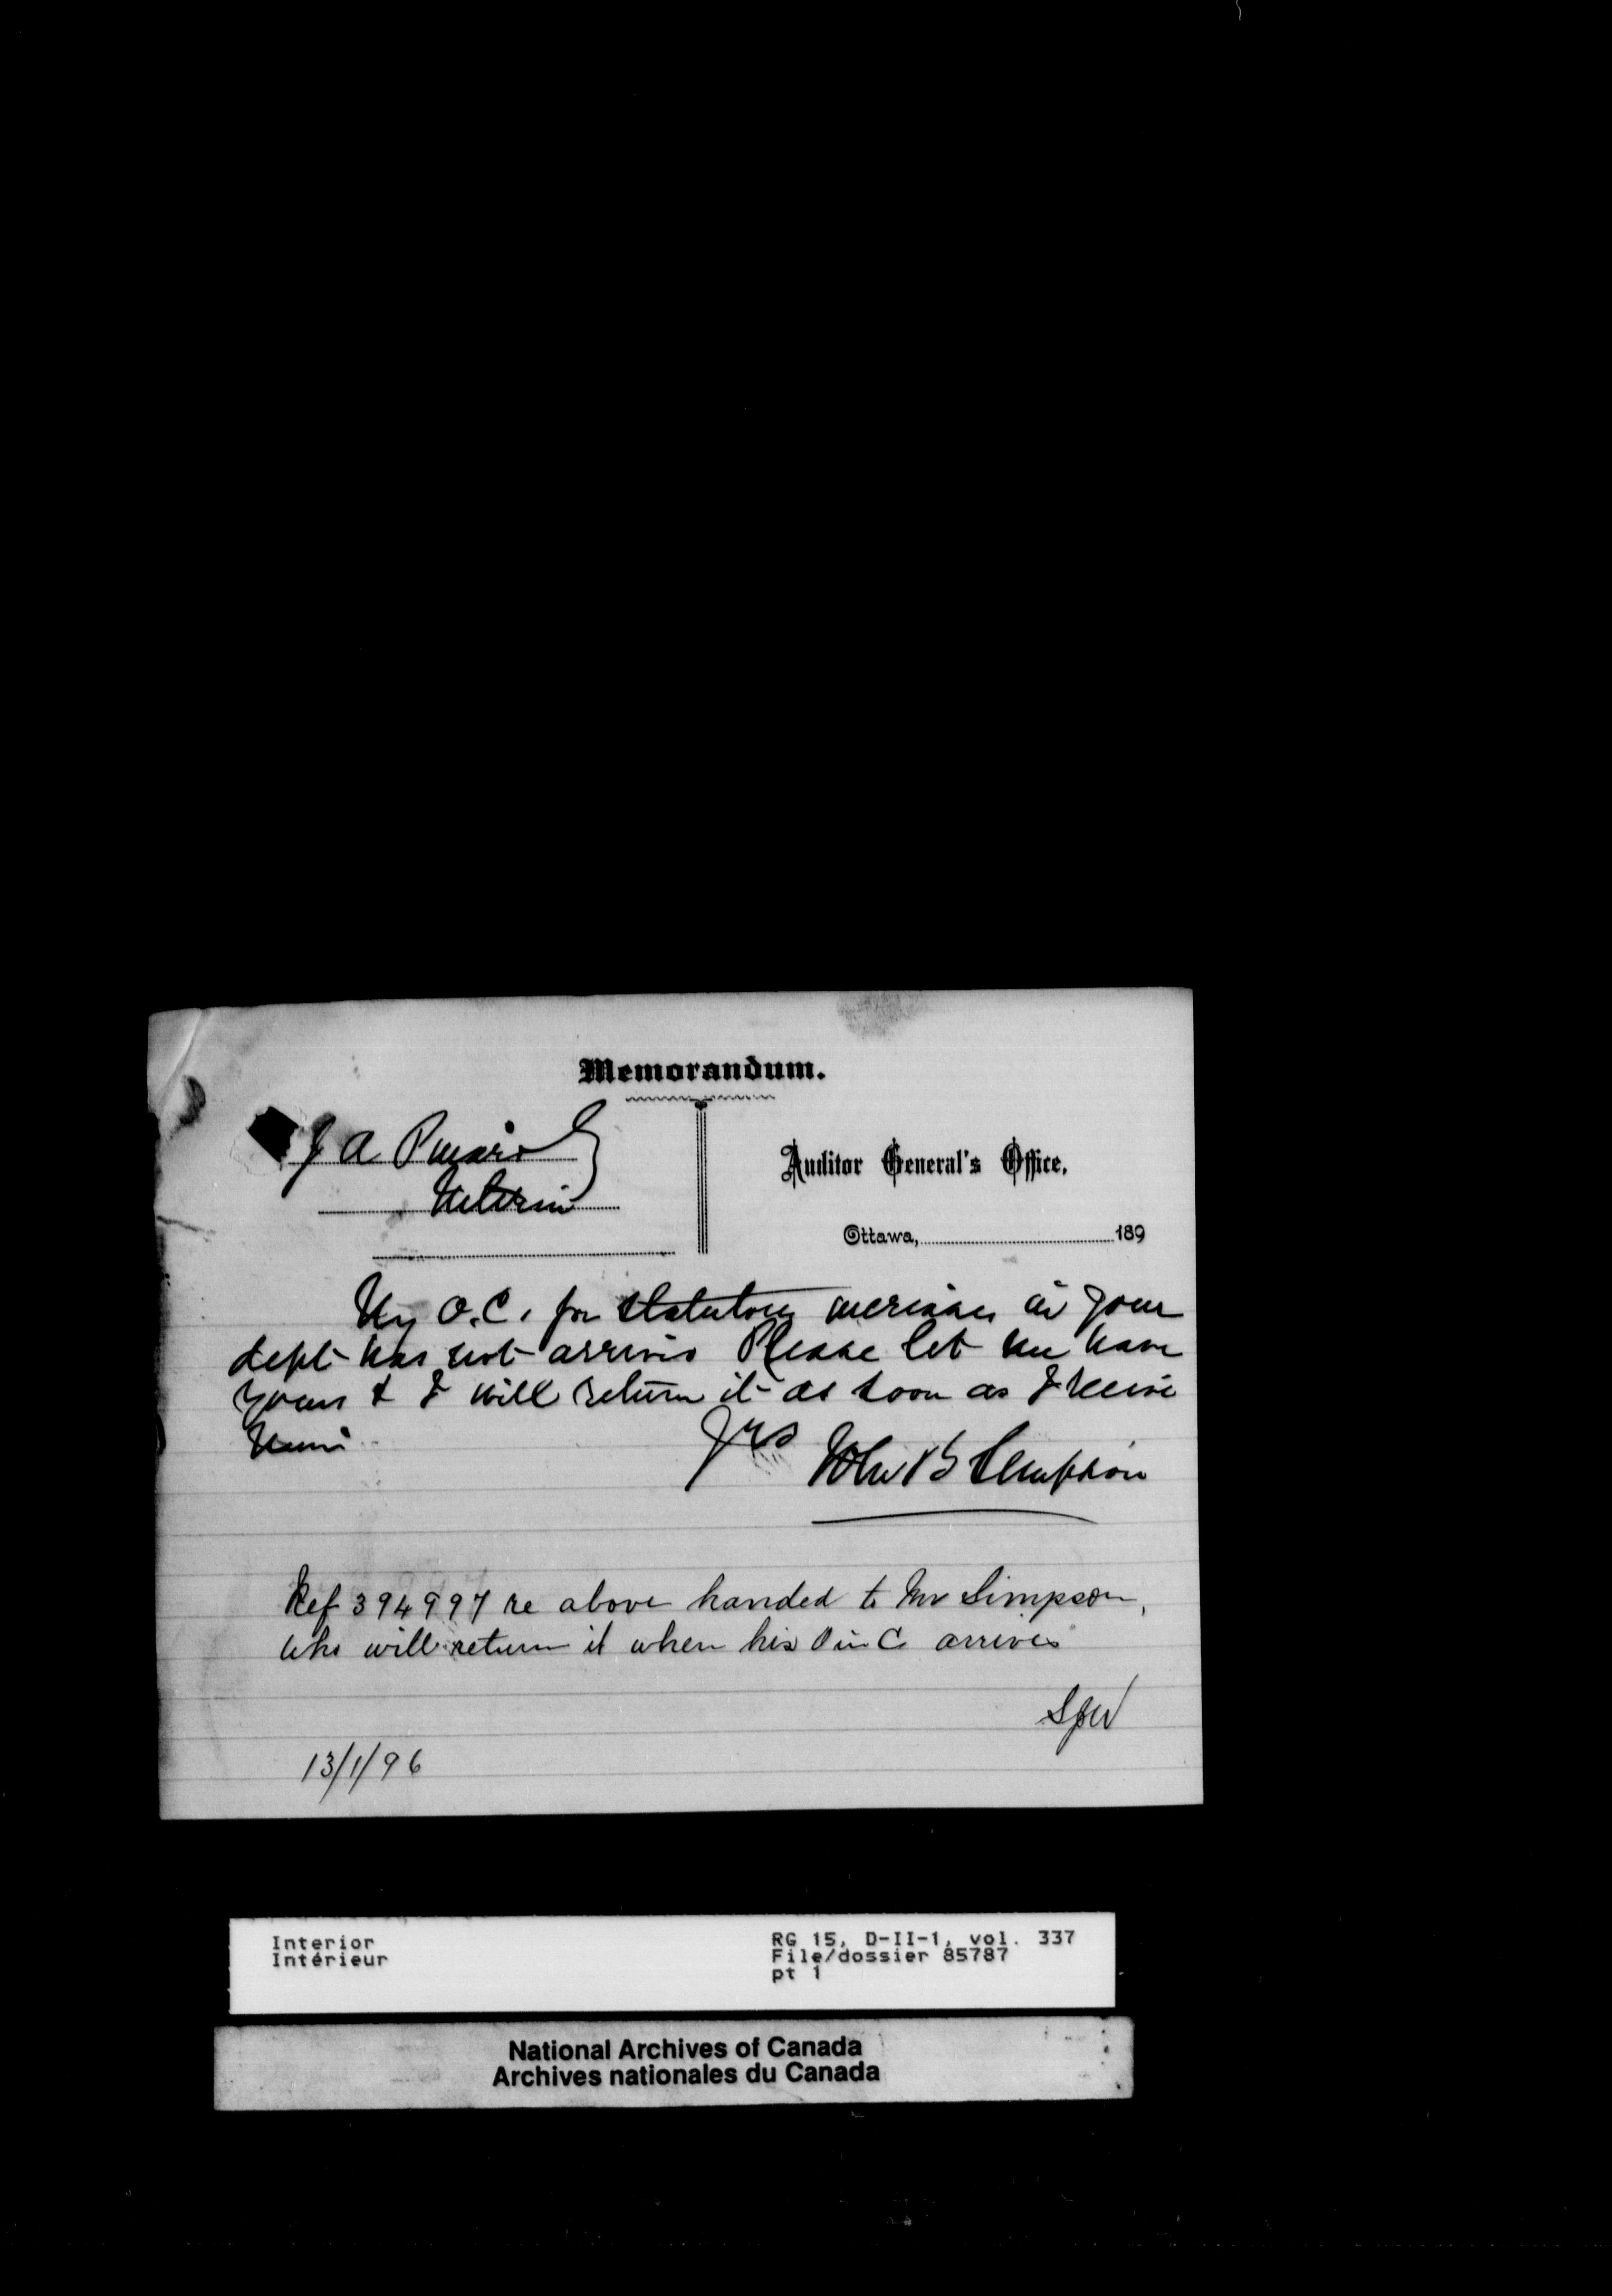 Memorandum.
J A Pinard
Interior
Auditor General's Office,
Ottawa, 189
My O.C. for statutory increases in your
dept has not arrived Please let me have
yours & I will return it as soon as I receive
mine
Yrs John B Simpson
Ref 394997 re above handed to Mr Simpson,
who will return it when his O in C arrives
13/1/96
Interior
Intérieur
RG 15, D-II-1, vol. 337
File/dossier 85787
pt 1
National Archives of Canada
Archives nationales du Canada